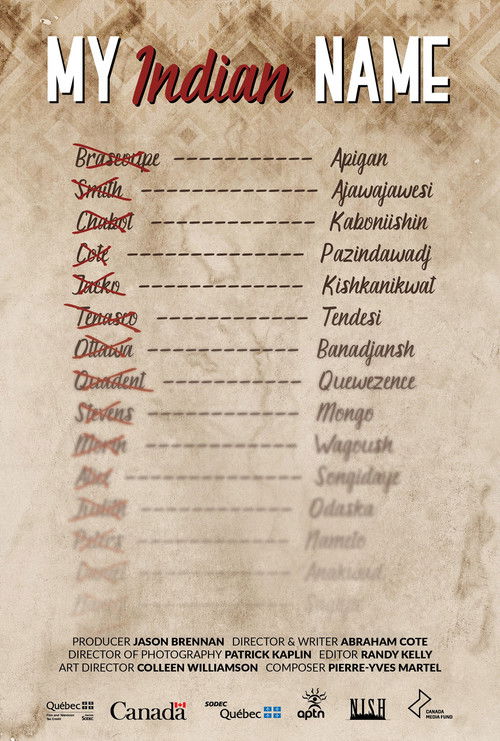 MY Indian NAME
Brascoupe ------------ Apigan
Smith ------------ Ajawajawesi
Chabot ------------ Kaboniishin
Cote ------------ Pazindawadj
Jacko ------------ Kishkanikwat
Tenasco ------------ Tendesi
Ottawa ------------ Banadjansh
Quadent ------------ Quewezence
Stevens ------------ Mongo
Morin ------------ Wagoush
------------ Songidaye
------------ Odaska
Peters ------------ Nameto
PRODUCER JASON BRENNAN DIRECTOR & WRITER ABRAHAM COTE
DIRECTOR OF PHOTOGRAPHY PATRICK KAPLIN EDITOR RANDY KELLY
ART DIRECTOR COLLEEN WILLIAMSON COMPOSER PIERRE-YVES MARTEL
Québec
Film and Television
Tax Credit
SODEC
Canada
SODEC
Québec
aptn
N.I.S.H
CANADA
MEDIA FUND